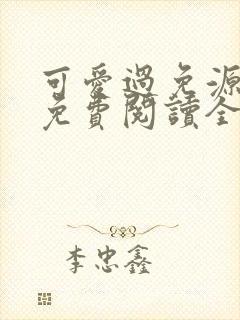 可愛過免源
免費閱讀全
李忠鑫